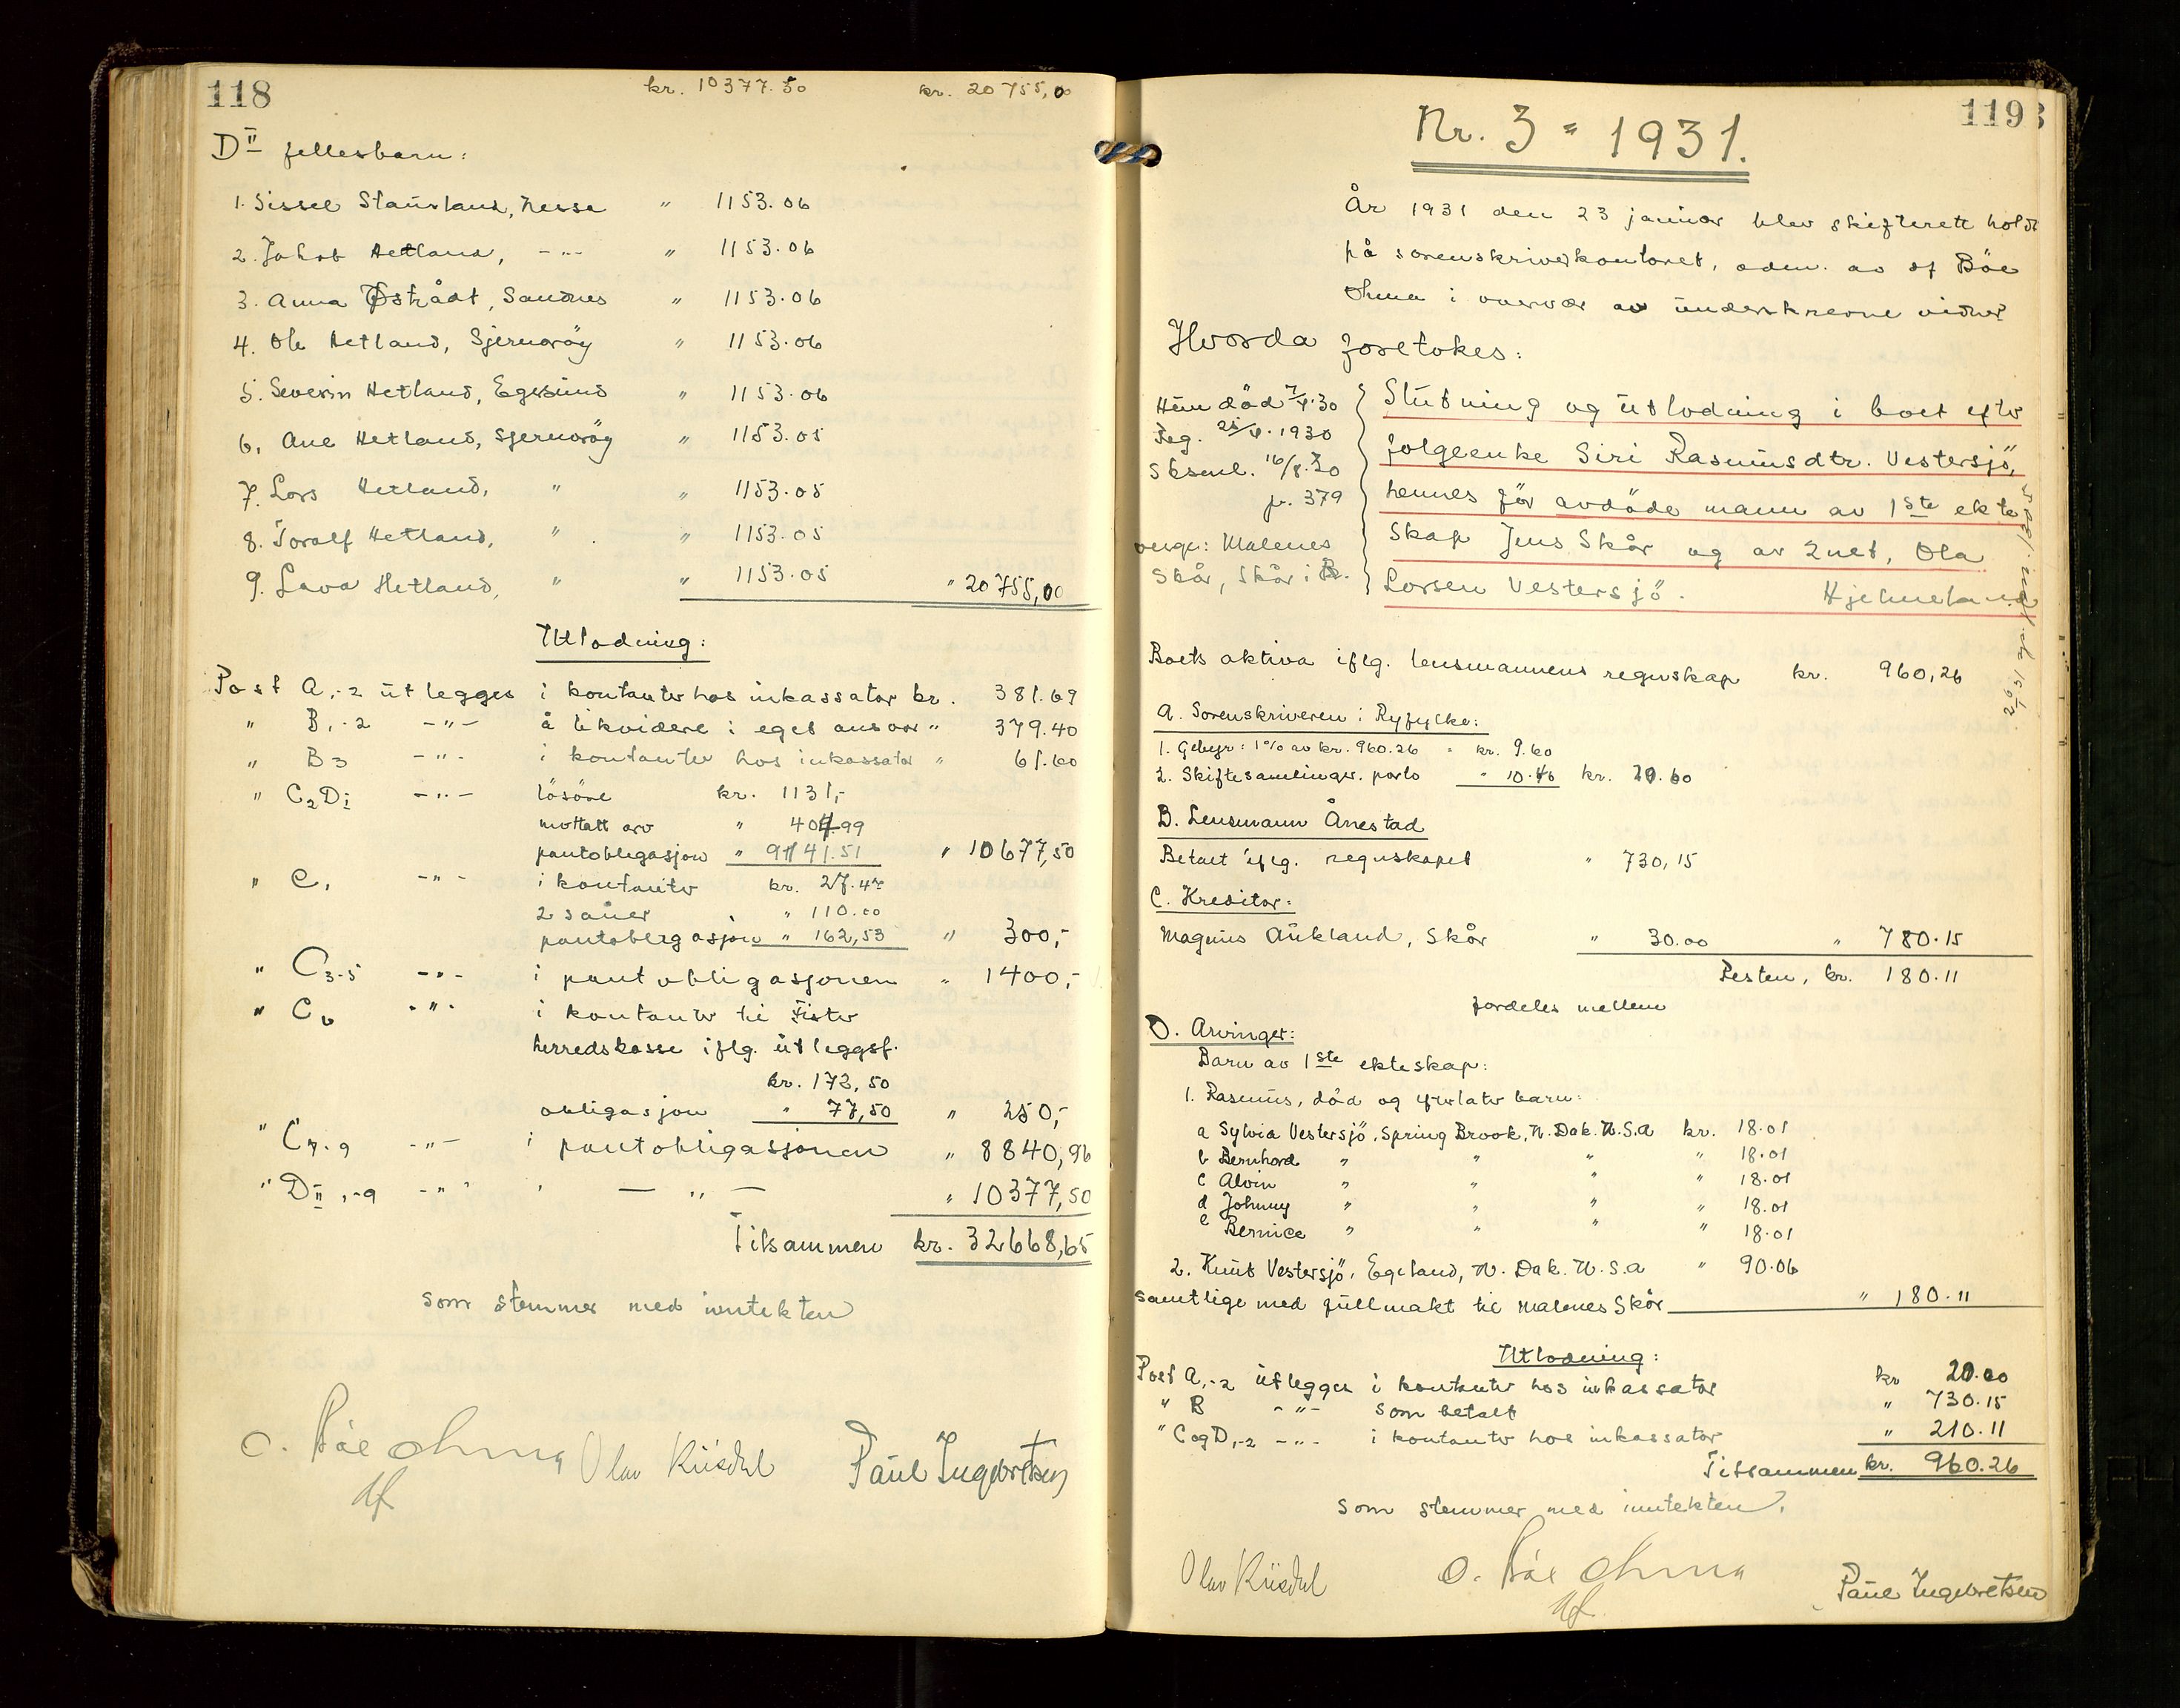 118
kr. 10377.50 kr. 20755,00
D II fellesbarn:
1. Sissel Staurland, Nesse " 1153.06
2. Jakob Hetland, -"- " 1153.06
3. Anna Østrådt, Sandnes " 1153.06
4. Ole Hetland, Sjernarøy " 1153.06
5. Severin Hetland, Egersund " 1153.06
6. Ane Hetland, Sjernarøy " 1153.05
7. Lars Hetland, " " 1153.05
8. Toralf Hetland, " " 1153.05
9. Lava Hetland, " " 1153.05 " 20755,00
Utlodning:
Post A1-2 utlegges i kontanter hos inkassator kr. 381.69
" B1-2 -"- å likvidere i eget ansvar " 379.40
" B3 -"- i kontanter hos inkassator " 61.60
" C2 DI -"- løsøre kr. 1131,-
mottatt arv " 404.99
pantobligasjon " 9141.51 " 10677,50
" C1 -"- i kontanter kr. 27.47
2 sauer " 110.00
pantobligasjon " 162,53 " 300,-
" C3-5 -"- i pantobligasjonen " 1400,-
" C6 -"- i kontanter til Fister
herredskasse iflg. utleggsf.
kr. 172,50
obligasjon " 77,50 " 250,-
" C7-9 -"- i pantobligasjonen " 8840,96
" DII 1-9 -"- " — " — " 10377,50
Tilsammen kr. 32668,65
som stemmer med inntekten
O. Böe Ohma Olav Riisdal Paul Ingebretsen
df
119
Nr. 3 = 1931.
År 1931 den 23 januar blev skifterett holdt
på sorenskriverkontoret, adm. av df Böe
Ohma i overvær av underskrevne vidner
Hvorda foretokes:
Hun död 7/4.30
Teg. 25/4.1930
Sksml. 16/8.30
p. 379
verge: Malenes
Skår, Skår i B.
Slutning og utlodning i boet efter
følgeenke Siri Rasmusdtr. Vestersjö,
hennes för avdöde mann av 1ste ekte
skap Jens Skår og av 2net, Ola
Larsen Vestersjö. Hjelmeland
Boets aktiva iflg. lensmannens regnskap kr. 960,26
A. Sorenskriveren i Ryfylke:
1. Gebyr: 1% av kr. 960.26 " kr. 9.60
2. Skiftesamlinger. porto " 10.40 kr. 20.00
B. Lensmann Ånestad
Betalt iflg. regnskapet " 730,15
C. Kreditor:
Magnus Aukland, Skår " 30.00 " 780.15
Resten, kr. 180.11
fordeles mellem
D. Arvinger:
Barn av 1ste ekteskap:
1. Rasmus, död og efterlater barn:
a Sylvia Vestersjö, Spring Brook, N. Dak. U.S.A kr. 18.01
b Bernhard " " " " 18.01
c Alvin " " " " 18.01
d Johnny " " " " 18.01
e Bernice " " " " 18.01
2. Knut Vestersjö, Egeland, N. Dak. U.S.A " 90.06
samtlige med fullmakt til Malenes Skår " 180.11
Utlodning:
Post A1-2 utlegges i kontanter hos inkassator kr 20.00
" B -"- som betalt " 730.15
" C og D1-2 -"- i kontanter hos inkassator " 210.11
Tilsammen kr. 960.26
som stemmer med inntekten.
Olav Riisdal O. Böe Ohma Paul Ingebretsen
df